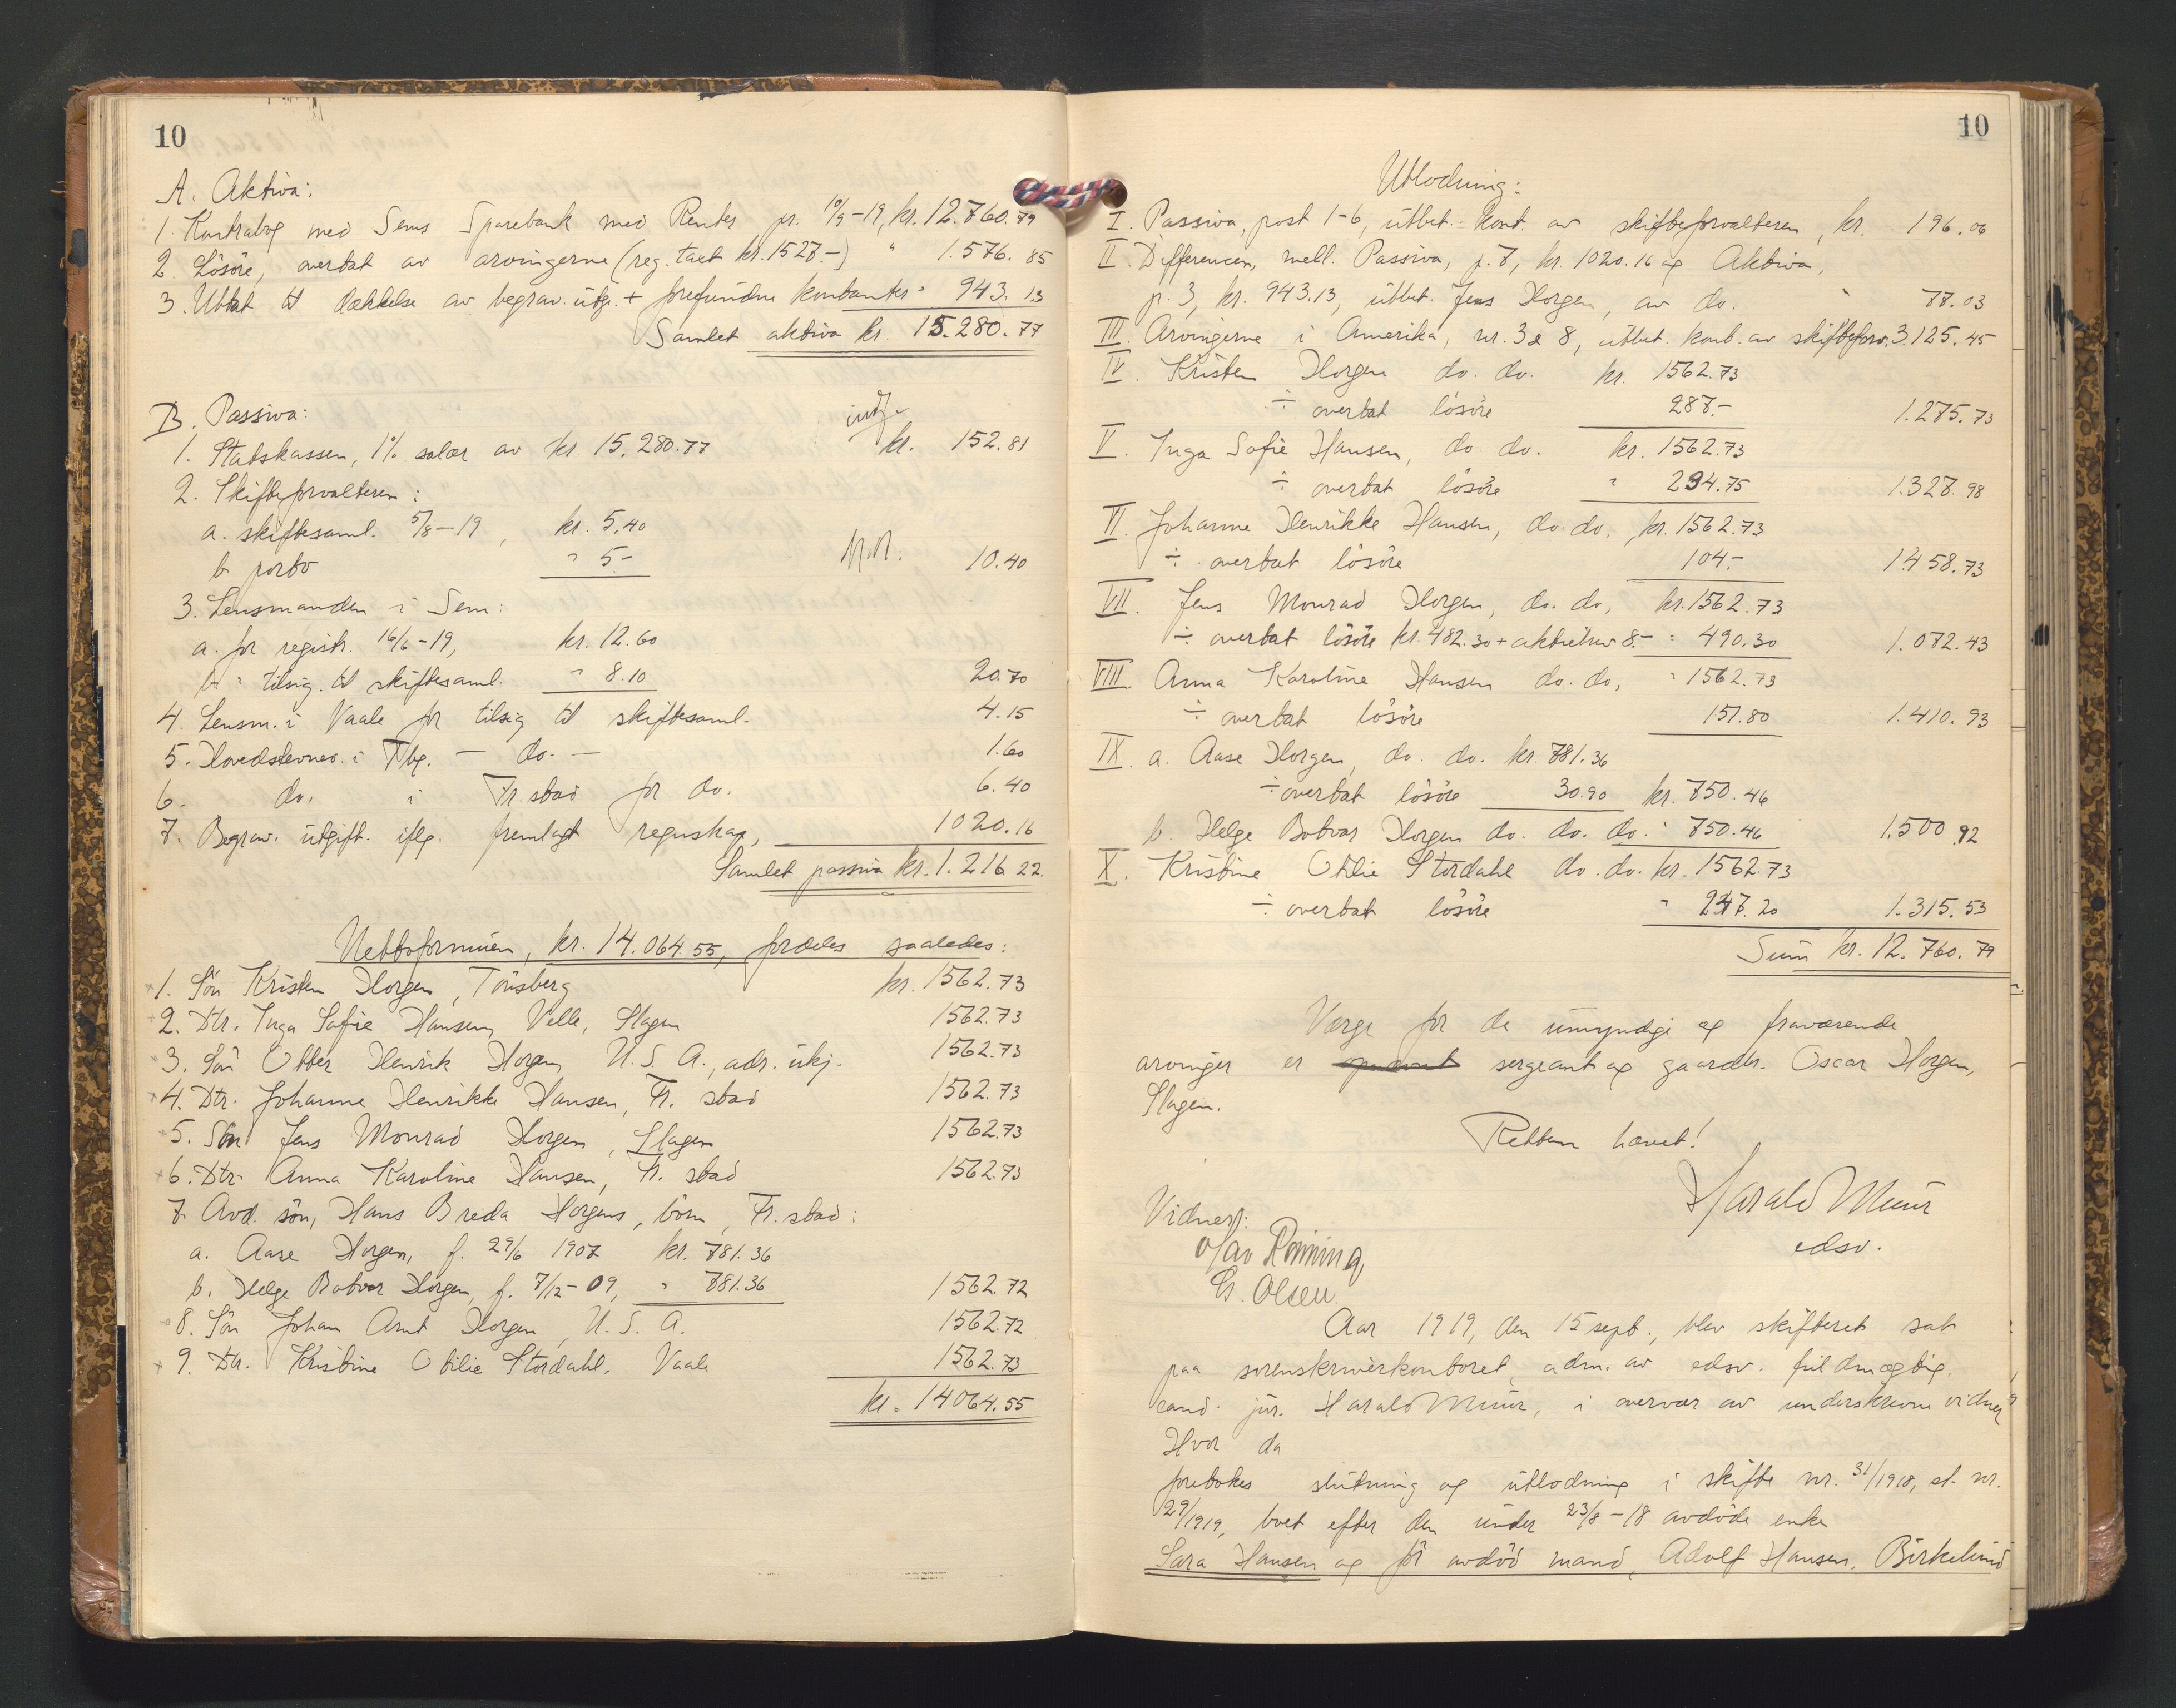 10
A. Aktiva:
1. Kontrabog med Sems Sparebank med Renter pr. 10/9-19, kr. 12.760.79
2. Lösöre, overtat av arvingerne (reg. taxt kr. 1527.-) " 1.576.85
3. Uttat til dækkelse av begrav. utg. + forefundne kontanter " 943.13
Samlet aktiva kr. 15.280.77
B. Passiva:
1. Statskassen, 1% salær av kr 15.280.77 kr. 152.81
2. Skifteforvalteren:
a. skiftesaml. 5/8-19, kr. 5.40
b. porto " 5.- 10.40
3. Lensmanden i Sem:
a. for registr. 16/6-19, kr. 12.60
b. " tilsig. til skiftesaml. " 8.10 20.70
4. Lensm. i Vaale for tilsig til skiftesaml. 4.15
5. Hovedstevnev. i Tbg. - do. - 1.60
6. do. i Fr.stad for do. 6.40
7. Begrav. utgift. iflg. fremlagt regnskap, 1020.16
Samlet passiva kr. 1.216.22.
Nettoformuen, kr. 14.064.55, fordeles saaledes:
1. Sön Kristen Horgen, Tönsberg kr. 1562.73
2. Dtr. Inga Sofie Hansen, Velle, Slagen 1562.73
3. Sön Otter Henrik Horgen, U.S.A., adr. ukj. 1562.73
4. Dtr. Johanne Henrikke Hansen, Fr. stad 1562.73
5. Sön Jens Monrad Horgen, Slagen 1562.73
6. Dtr. Anna Karoline Hansen, Fr. stad 1562.73
7. Avd. sön, Hans Breda Horgens, börn, Fr. stad:
a. Aase Horgen, f. 29/6 1907 kr. 781.36
b. Helge Botvar Horgen, f. 7/12-09, " 781.36 1562.72
8. Sön Johan Arnt Horgen, U.S.A. 1562.72
9. Dtr. Kristine Otilie Stordahl, Vaale 1562.73
kr. 14064.55
10
Utlodning:
I. Passiva, post 1-6, utbet. kont. av skifteforvalteren, kr. 196.06
II. Differencen, mell. Passiva, p. 7, kr. 1020.16 og Aktiva,
p. 3, kr. 943.13, utbet. Jens Horgen, av do. " 77.03
III. Arvingerne i Amerika, nr. 3 & 8, utbet. kont. av skifteforv. 3.125.45
IV. Kristen Horgen do. do. kr. 1562.73
÷ overtat lösöre 287.- 1.275.73
V. Inga Sofie Hansen, do. do. kr. 1562.73
÷ overtat lösöre " 234.75 1.327.98
VI. Johanne Henrikke Hansen, do. do. kr. 1562.73
÷ overtat lösöre 104.- 1.458.73
VII. Jens Monrad Horgen, do. do, kr. 1562.73
÷ overtat lösöre kr. 482.30 + aktiebrev 8.- " 490.30 1.072.43
VIII. Anna Karoline Hansen do. do, " 1562.73
÷ overtat lösöre 151.80 1.410.93
IX. a. Aase Horgen, do. do. kr. 781.36
÷ overtat lösöre 30.90 kr. 750.46
b. Helge Botvar Horgen do. do. do. " 750.46 1.500.92
X. Kristine Otilie Stordahl do. do. kr. 1562.73
÷ overtat lösöre " 247.20 1.315.53
Sum kr. 12.760.79
Verge for de umyndige og fraværende
arvinger er sergeant og gaardbr. Oscar Horgen,
Slagen.
Retten hævet!
Harald Muur
edsv.
Vidner:
Olav Rönning
G. Olsen
Aar 1919, den 15 sept., blev skifteret sat
paa sorenskriverkontoret, adm. av edsv. fuldmægtig,
cand. jur. Harald Muur, i overvær av underskrevne vidner
Hvor da
foretokes slutning og utlodning i skifte nr. 31/1918, sl. nr.
29/1919, boet efter den under 23/8-18 avdöde enke
Sara Hansen og för avdöd mand, Adolf Hansen, Birkelund